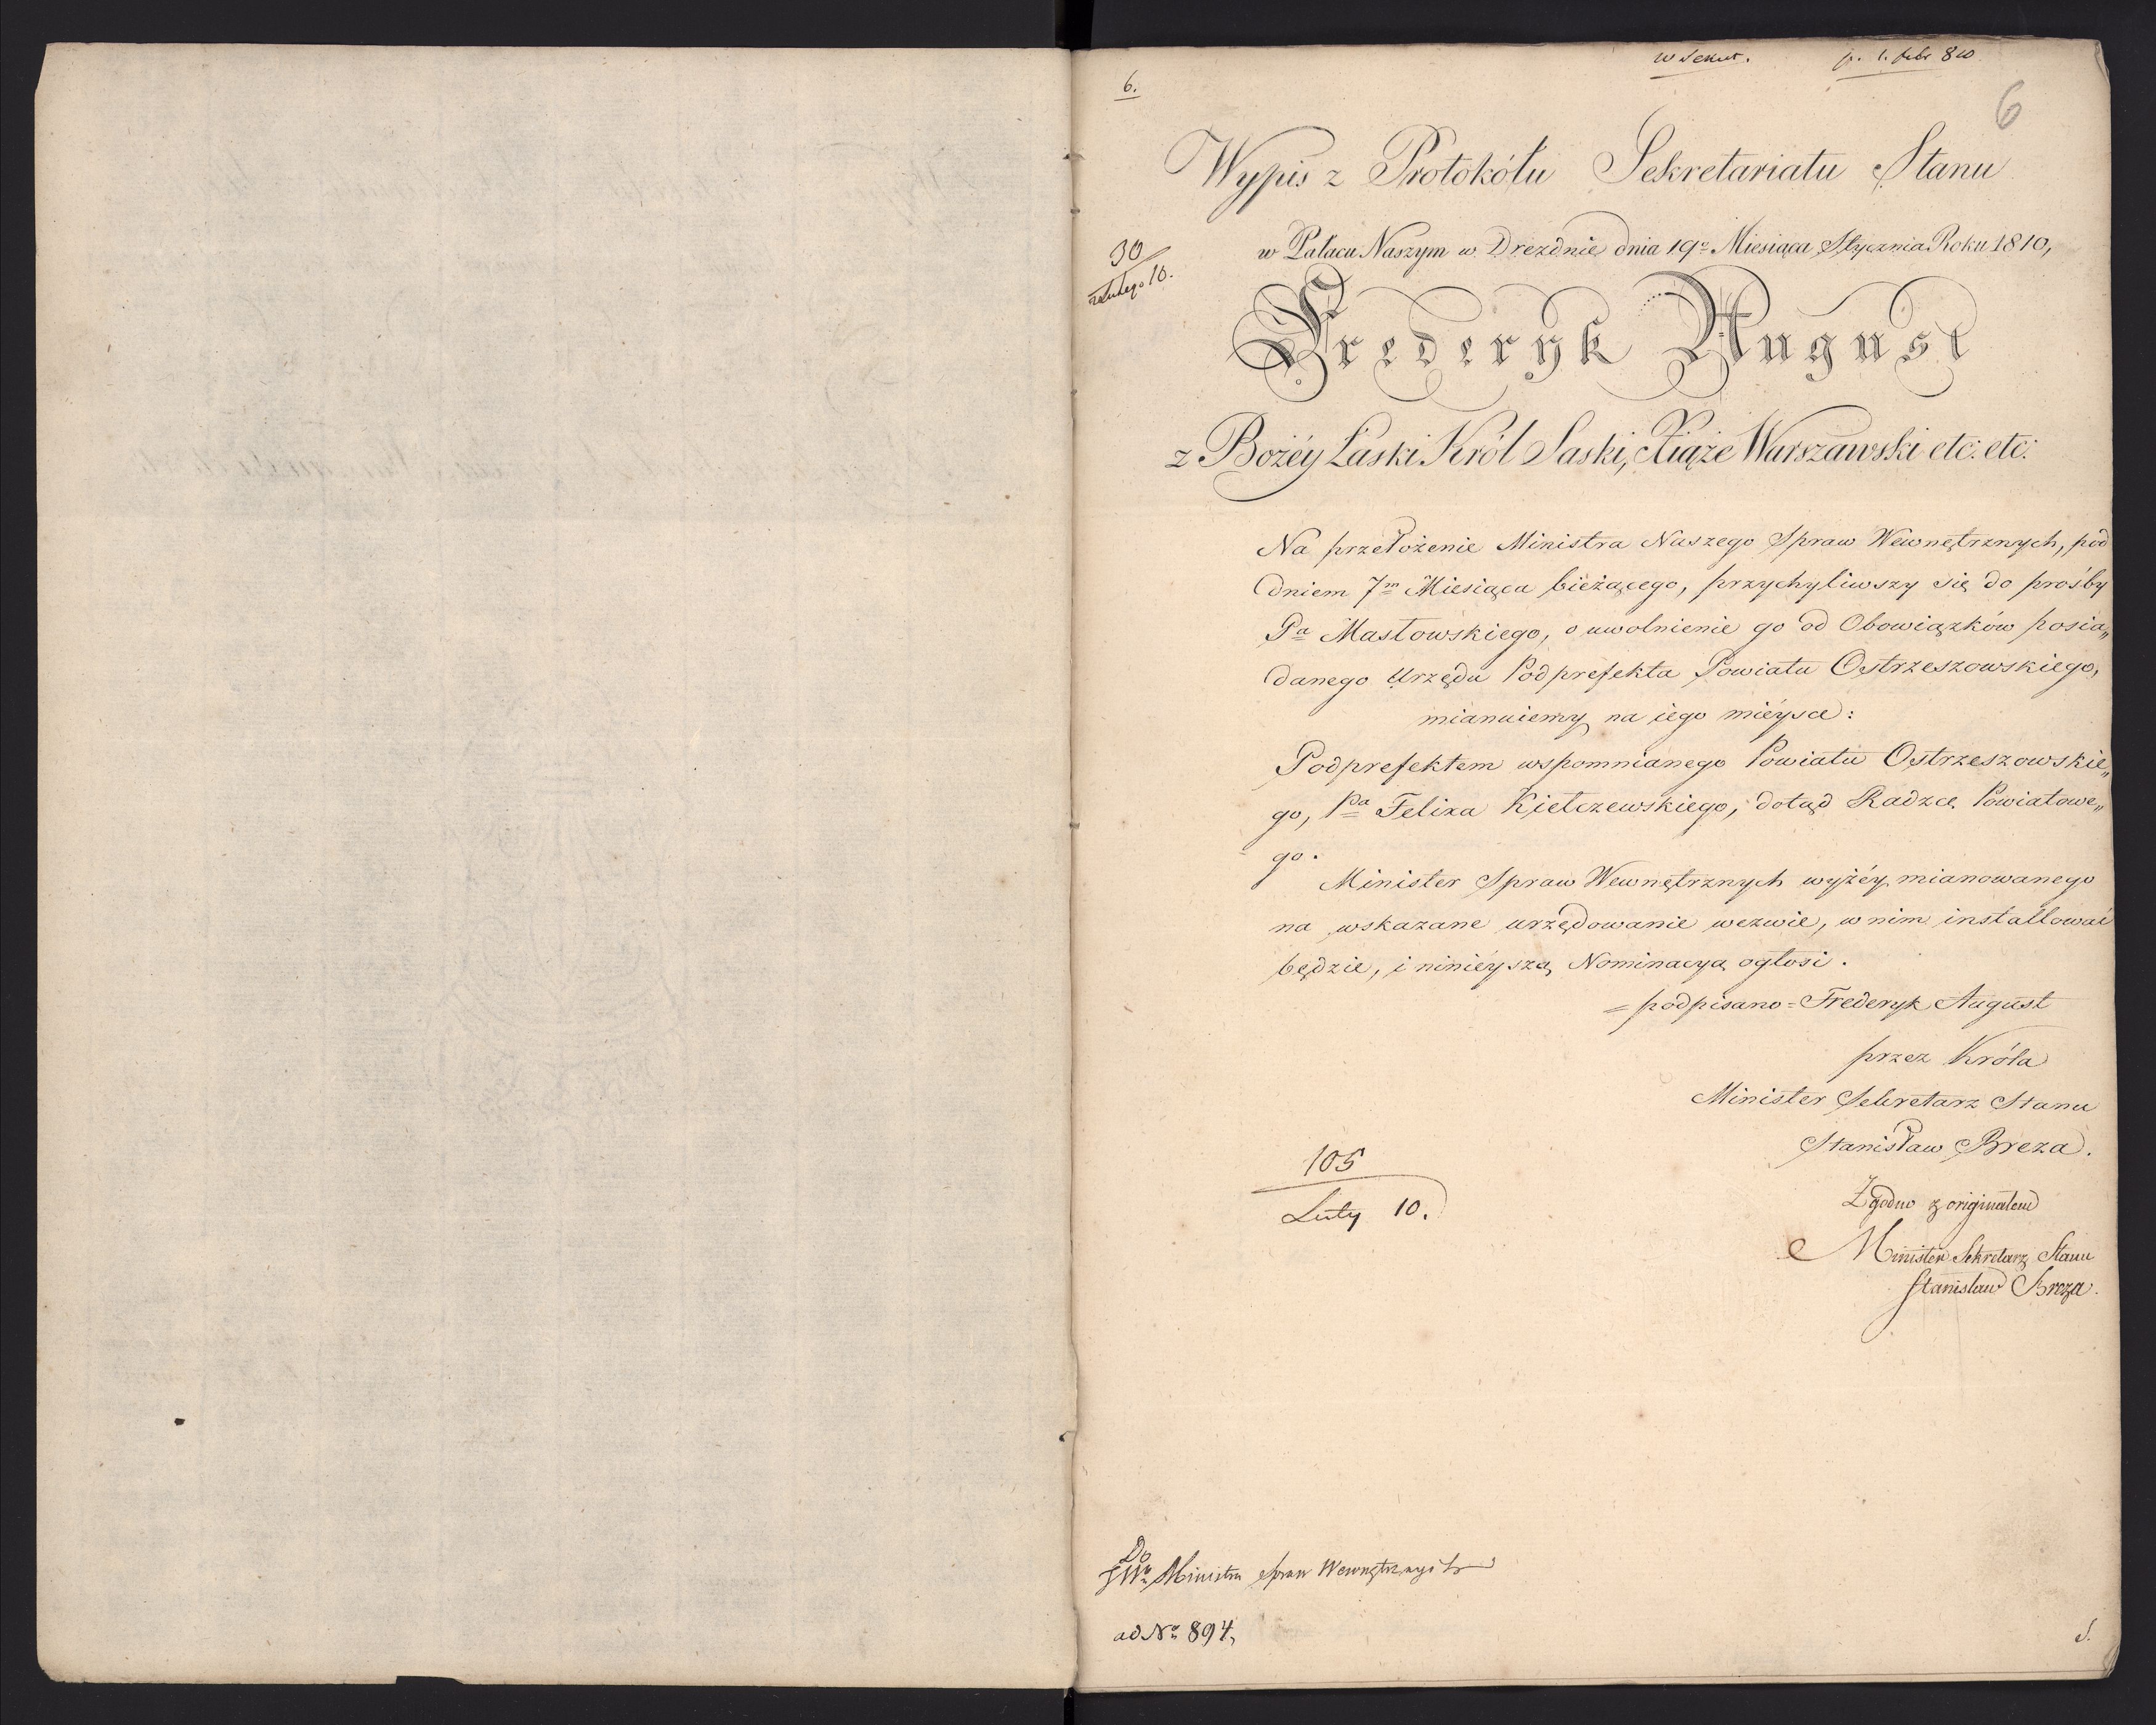 w Sekret. p. 1. febr 810
6.
6
Wypis z Protokółu Sekretariatu Stanu
w Pałacu Naszym w Dreznie dnia 19º Miesiąca Stycznia Roku 1810,
30
Lutego 10.
Frederyk August
z Bożéy Łaski Król Saski, Xiąże Warszawski etc: etc:
Na przełożenie Ministra Naszego Spraw Wewnętrznych, pod
dniem 7m Miesiąca bieżącego, przychyliwszy się do prośby
Pa Masłowskiego, o uwolnienie go od Obowiązków posia„
danego Urzędu Podprefekta Powiatu Ostrzeszowskiego,
mianuiemy na iego miéysce:
Podprefektem wspomnianego Powiatu Ostrzeszowskie„
go, Pa Felixa Kiełczewskiego, dotąd Radzcę Powiatowe„
go.
Minister Spraw Wewnętrznych wyżéy mianowanego
na wskazane urzędowanie wezwie, w nim installować
będzie, i ninieyszą Nominacyą ogłosi.
= podpisano = Frederyk August
przez Króla
Minister Sekretarz Stanu
Stanisław Breza.
105
Luty 10.
Zgodno z originałem
Minister Sekretarz Stanu
Stanisław Breza.
Do
JWo Ministra Spraw Wewnętrznych
ad No 894,
S.